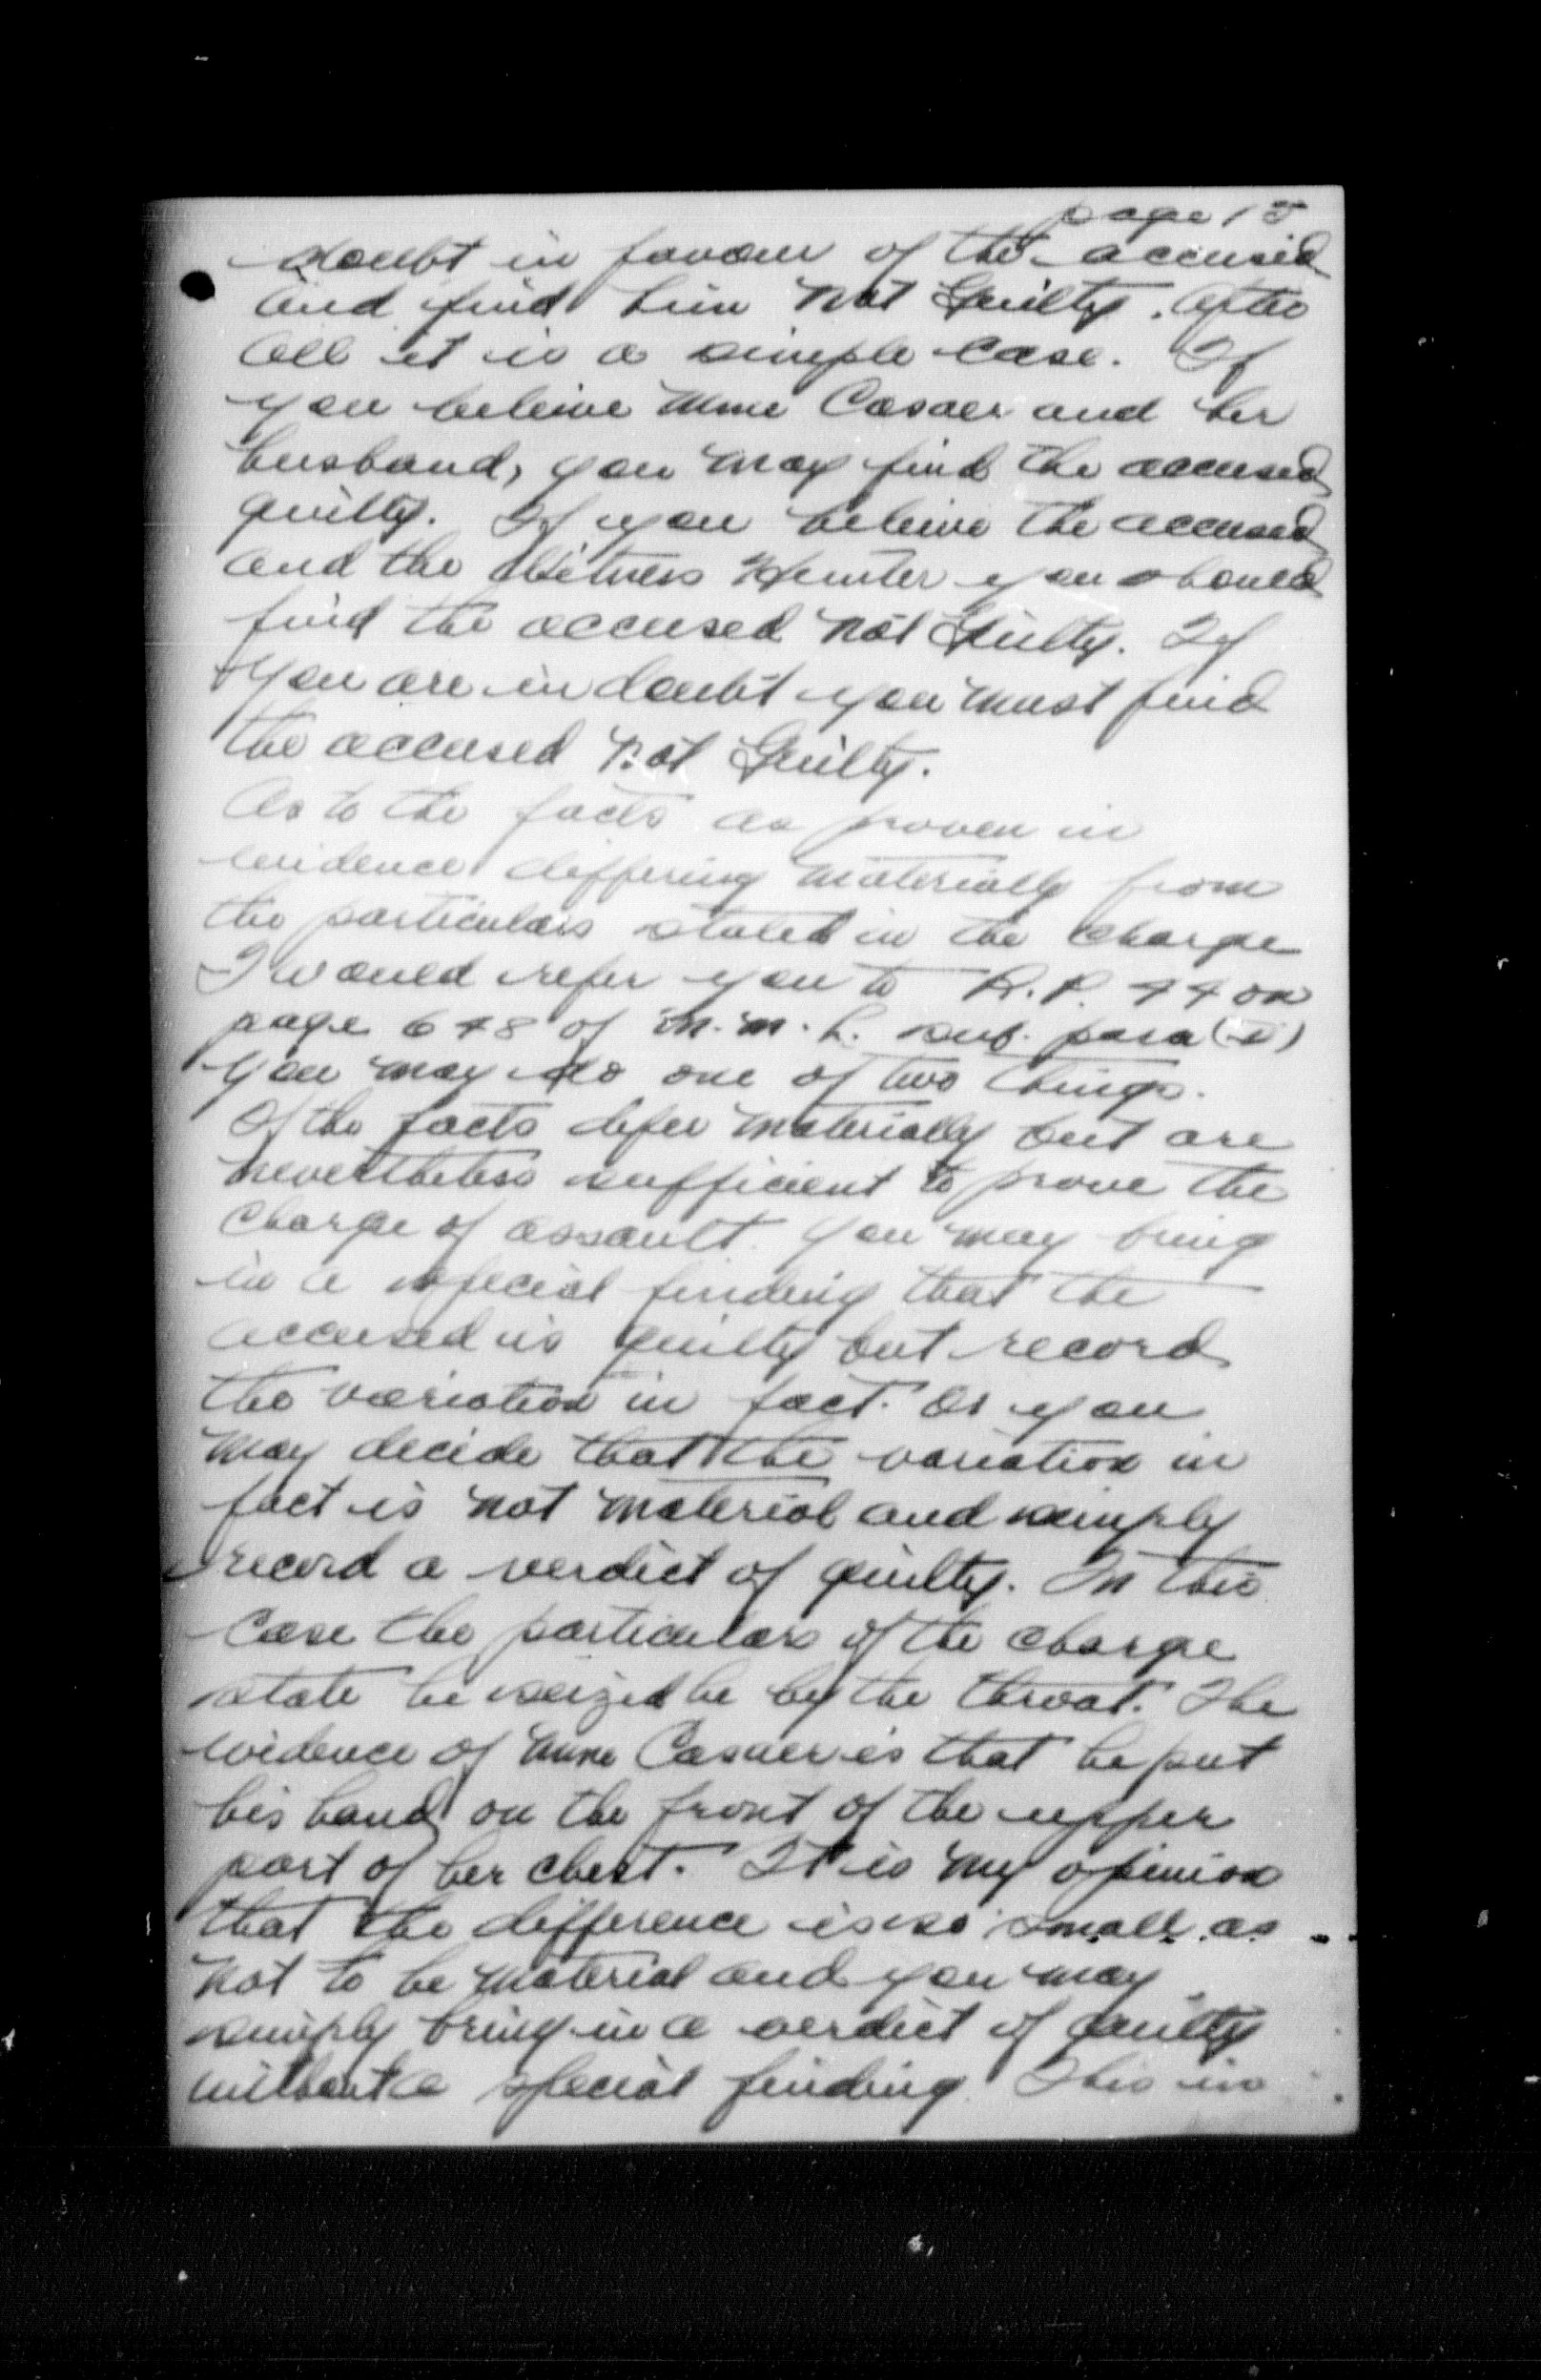 page 15
doubt in favour of the accused
and find him not Guilty. After
all it is a simple case. If
you beleive Mme Casaer and her
husband, you may find the accused
guilty. If you beleive the accused
and the Witness Hunter you should
find the accused not Guilty. If
you are in doubt you must find
the accused not Guilty.
As to the facts as proven in
evidence differing materially from
the particulars stated in the charge
I would refer you to R.P. 44 on
page 648 of M.M.L. sub. para
You may do one of two things.
If the facts defer materially but are
nevertheless sufficient to prove the
charge of assault. You may bring
in a special finding that the
accused is guilty but record
the variation in fact. Or you
may decide that the variation in
fact is not material and simply
record a verdict of guilty. In this
case the particulars of the charge
state he seized he by the throat. The
evidence of Mme Casaer is that he put
his hand on the front of the upper
part of her chest. It is my opinion
that the difference is so small as
not to be material and you may
simply bring in a verdict of guilty
without a special finding. This in